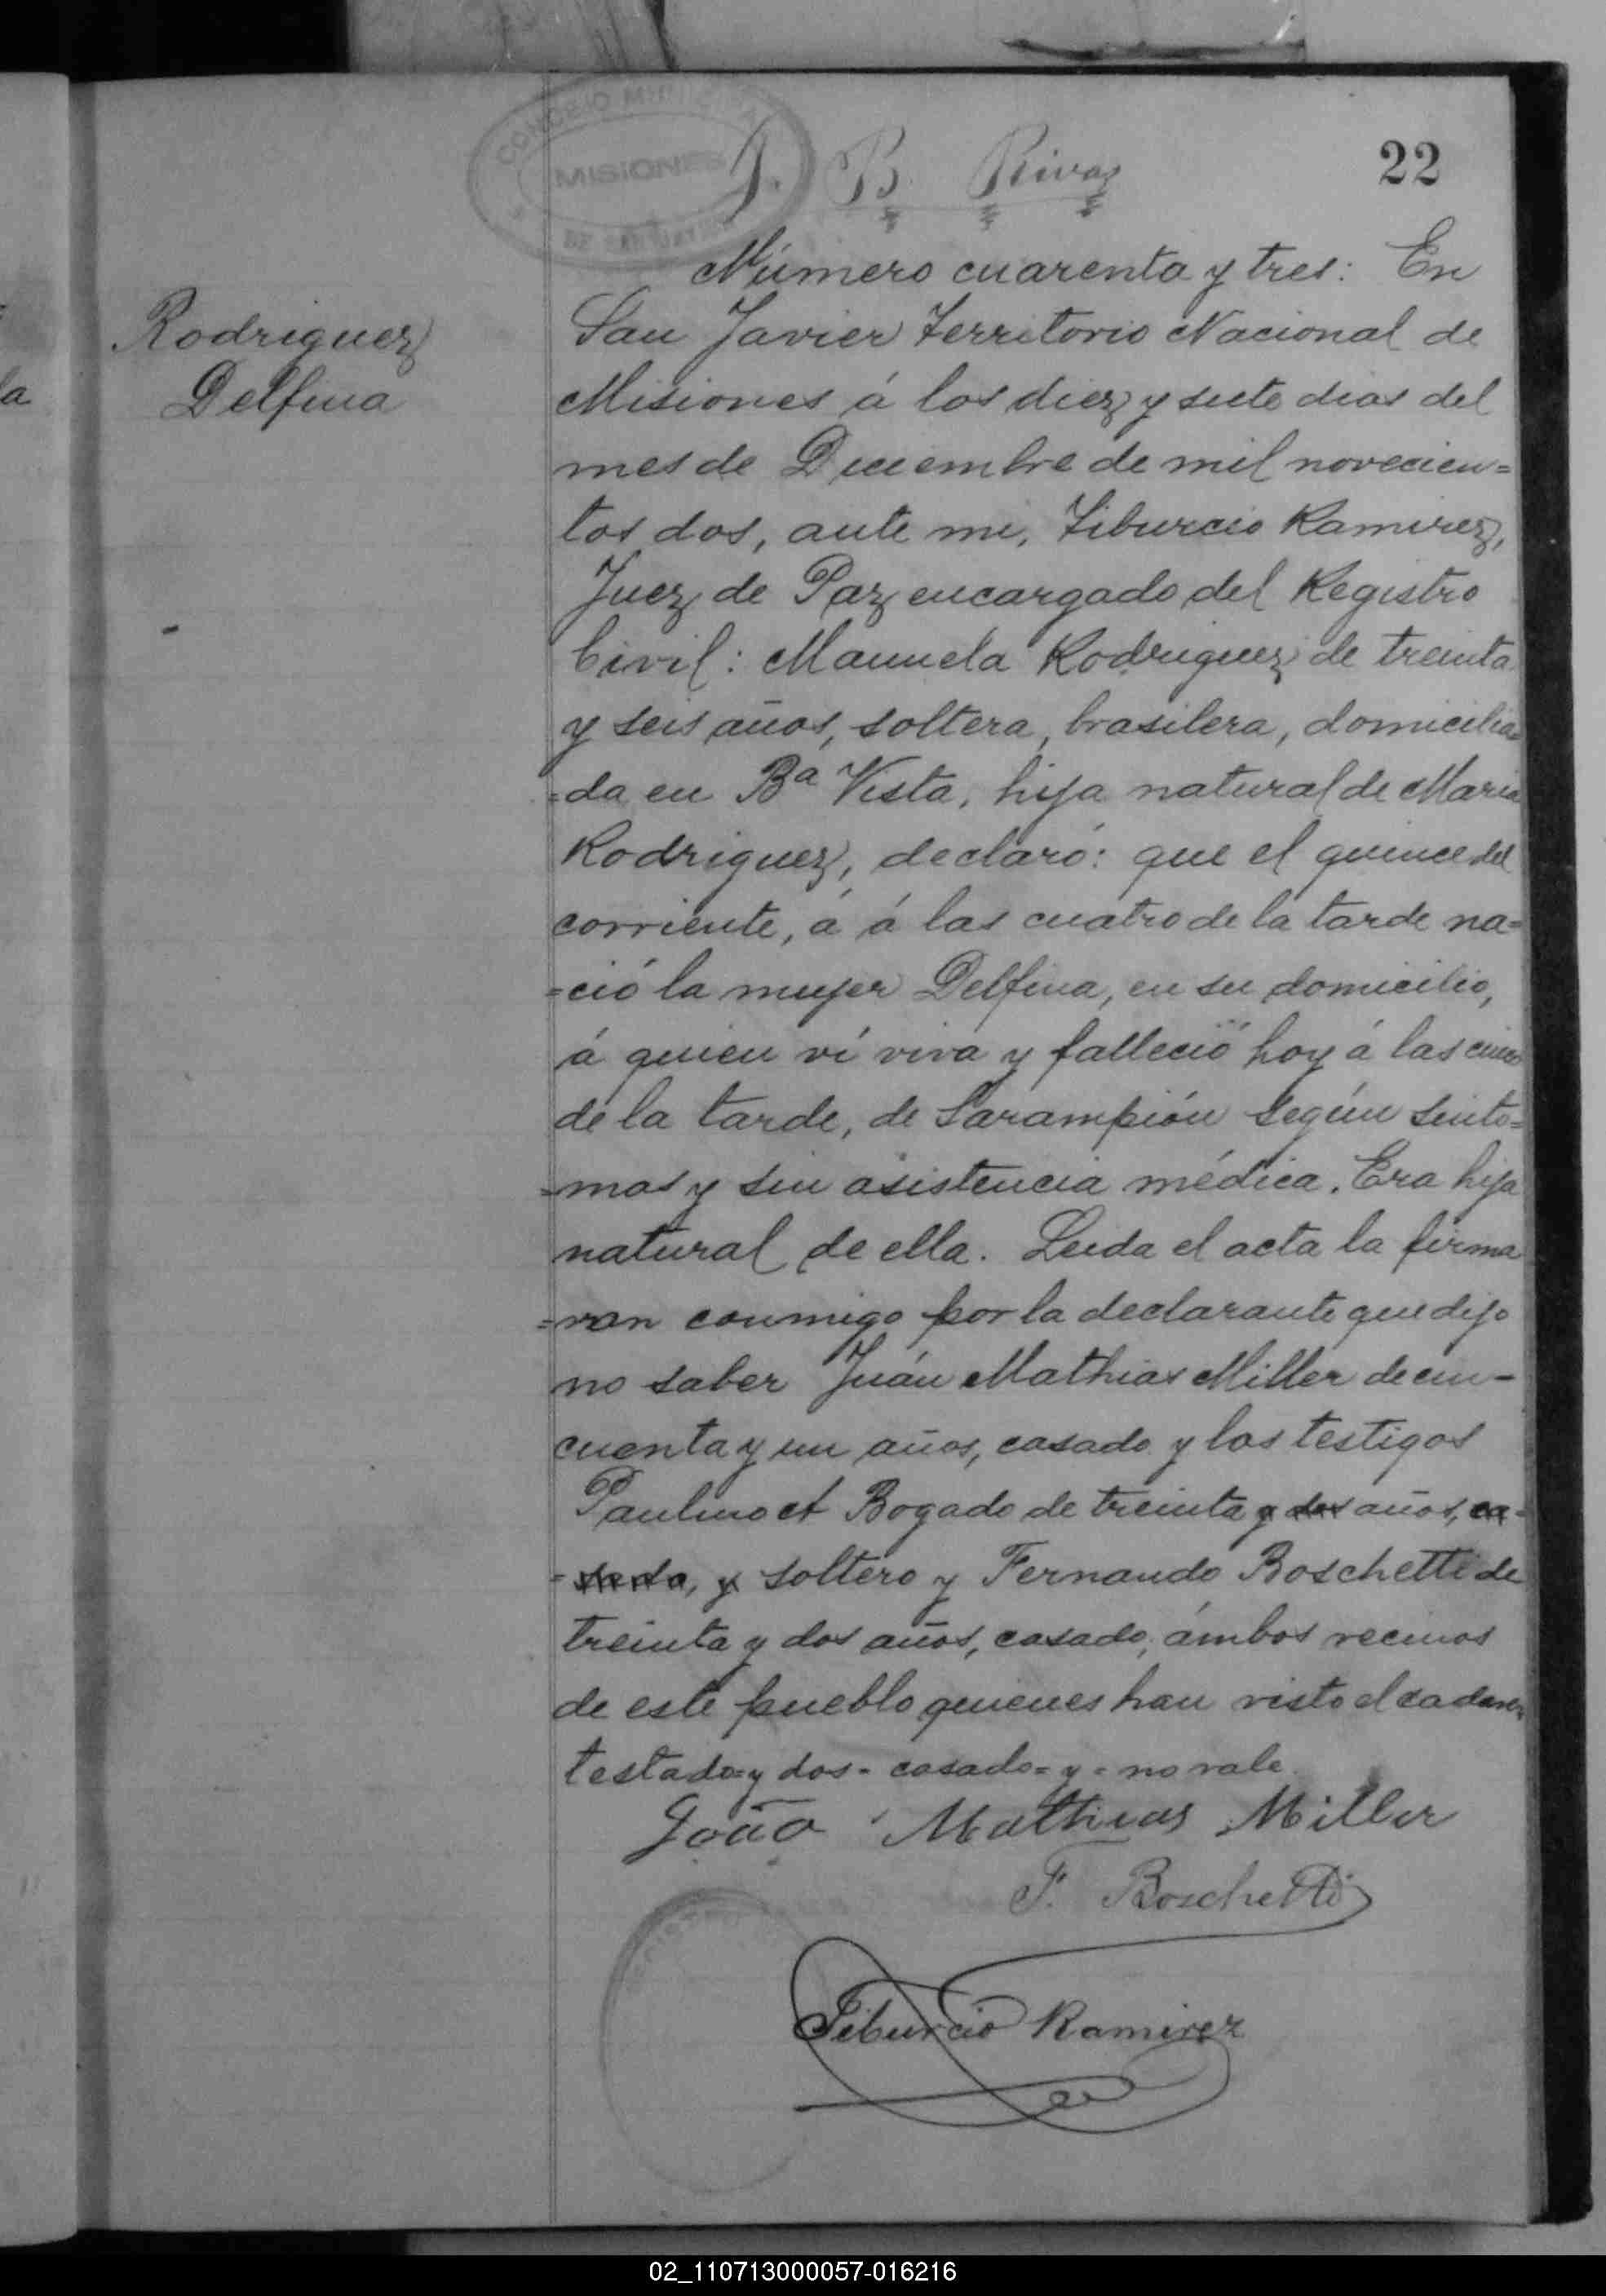 MISIONES
J. B. Rivas
22
Rodriguez
Delfina
a
Número cuarenta y tres: En
San Javier Territorio Nacional de
Misiones á los diez y siete dias del
mes de Diciembre de mil novecien=
tos dos, ante mi, Tiburcio Ramirez,
Juez de Paz encargado del Registro
Civil: Manuela Rodriguez de treinta
y seis años, soltera, brasilera, domicilia=
=da en Bª Vista, hija natural de Maria
Rodriguez, declaró: que el quince del
corriente, á á las cuatro de la tarde na=
=ció la mujer Delfina, en su domicilio,
á quien ví viva y falleció hoy á las cinco
de la tarde, de Sarampión según sinto=
=mas y sin asistencia médica. Era hija
natural de ella. Leida el acta la firma
=ron conmigo por la declarante que dijo
no saber Juán Mathias Miller de cin-
cuenta y un años, casado y los testigos
Paulino A Bogado de treinta y dos años, ca=
=sado, y soltero y Fernando Boschetti de
treinta y dos años, casado, ámbos vecinos
de este pueblo quienes han visto el cadaver
testado=y dos= casado= y = no vale.
João Mathias Miller
F. Boschetti
Tiburcio Ramirez
02_110713000057-016216